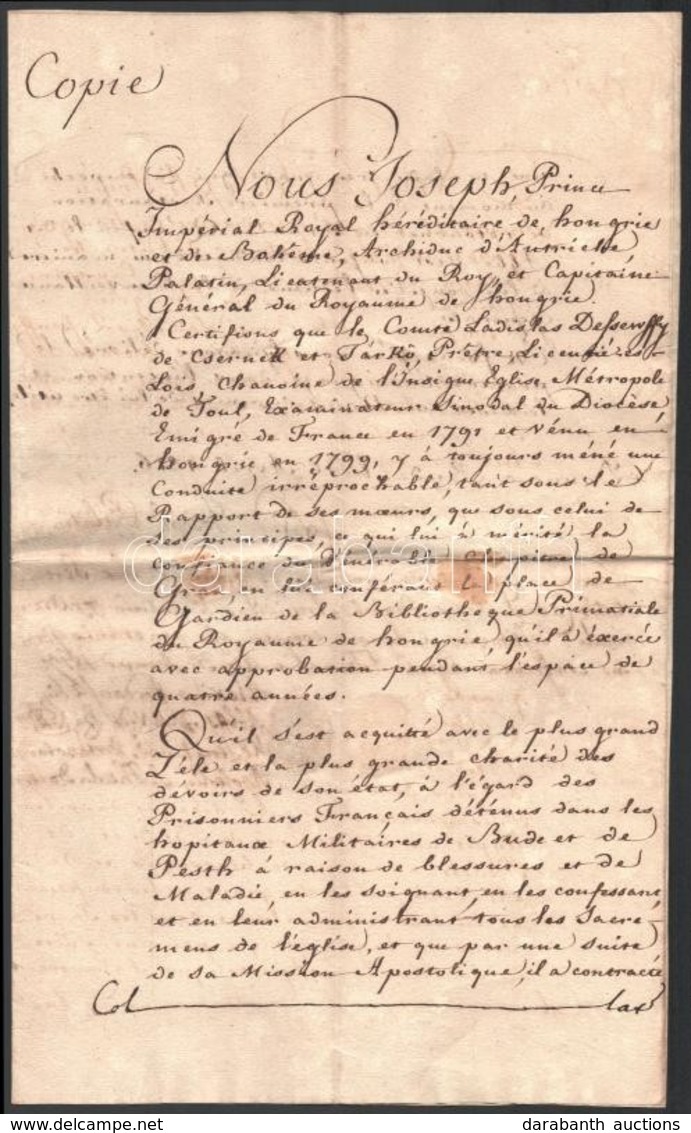 Copie
Nous Joseph, Prince
Impérial Royal héréditaire de hongrie
et de Bohême, Archiduc d'Autriche
Palatin, Lieutenant du Roy, et Capitaine
Général du Royaume de hongrie.
Certifions que le Comte Ladislas Dessewffy
de Csernek et Tarkö, Prêtre, Licentié-es-
Lois, Chanoine de l'Insigne Eglise Métropole
de Toul, Examinateur Sinodal du Diocèse
Emigré de France en 1791 et vénu en
hongrie en 1799, y à toujours méné une
Conduite irréprochable, tant sous le
Rapport de ses mœurs, que sous celui de
ses principes, ce qui lui à mérité la
confiance du Vénérable Chapitre de
Gran, en lui conférant la place de
Gardien de la Bibliotheque Primatiale
du Royaume de hongrie qu'il à éxercée
avec approbation pendant l'espace de
quatre années.
Qu'il s'est acquitté avec le plus grand
Zéle et la plus grande charité des
dévoirs de son état, à l'égard des
Prisonniers Français détenus dans les
hopitaux Militaires de Bude et de
Pesth à raison de blessures et de
Maladie, en les soignant, en les confessant,
et en leur administrant tous les Sacre-
mens de l'église, et que par une suite
de sa Mission Apostolique, il a contracté
Col lat
darabanth
darabanth auctions